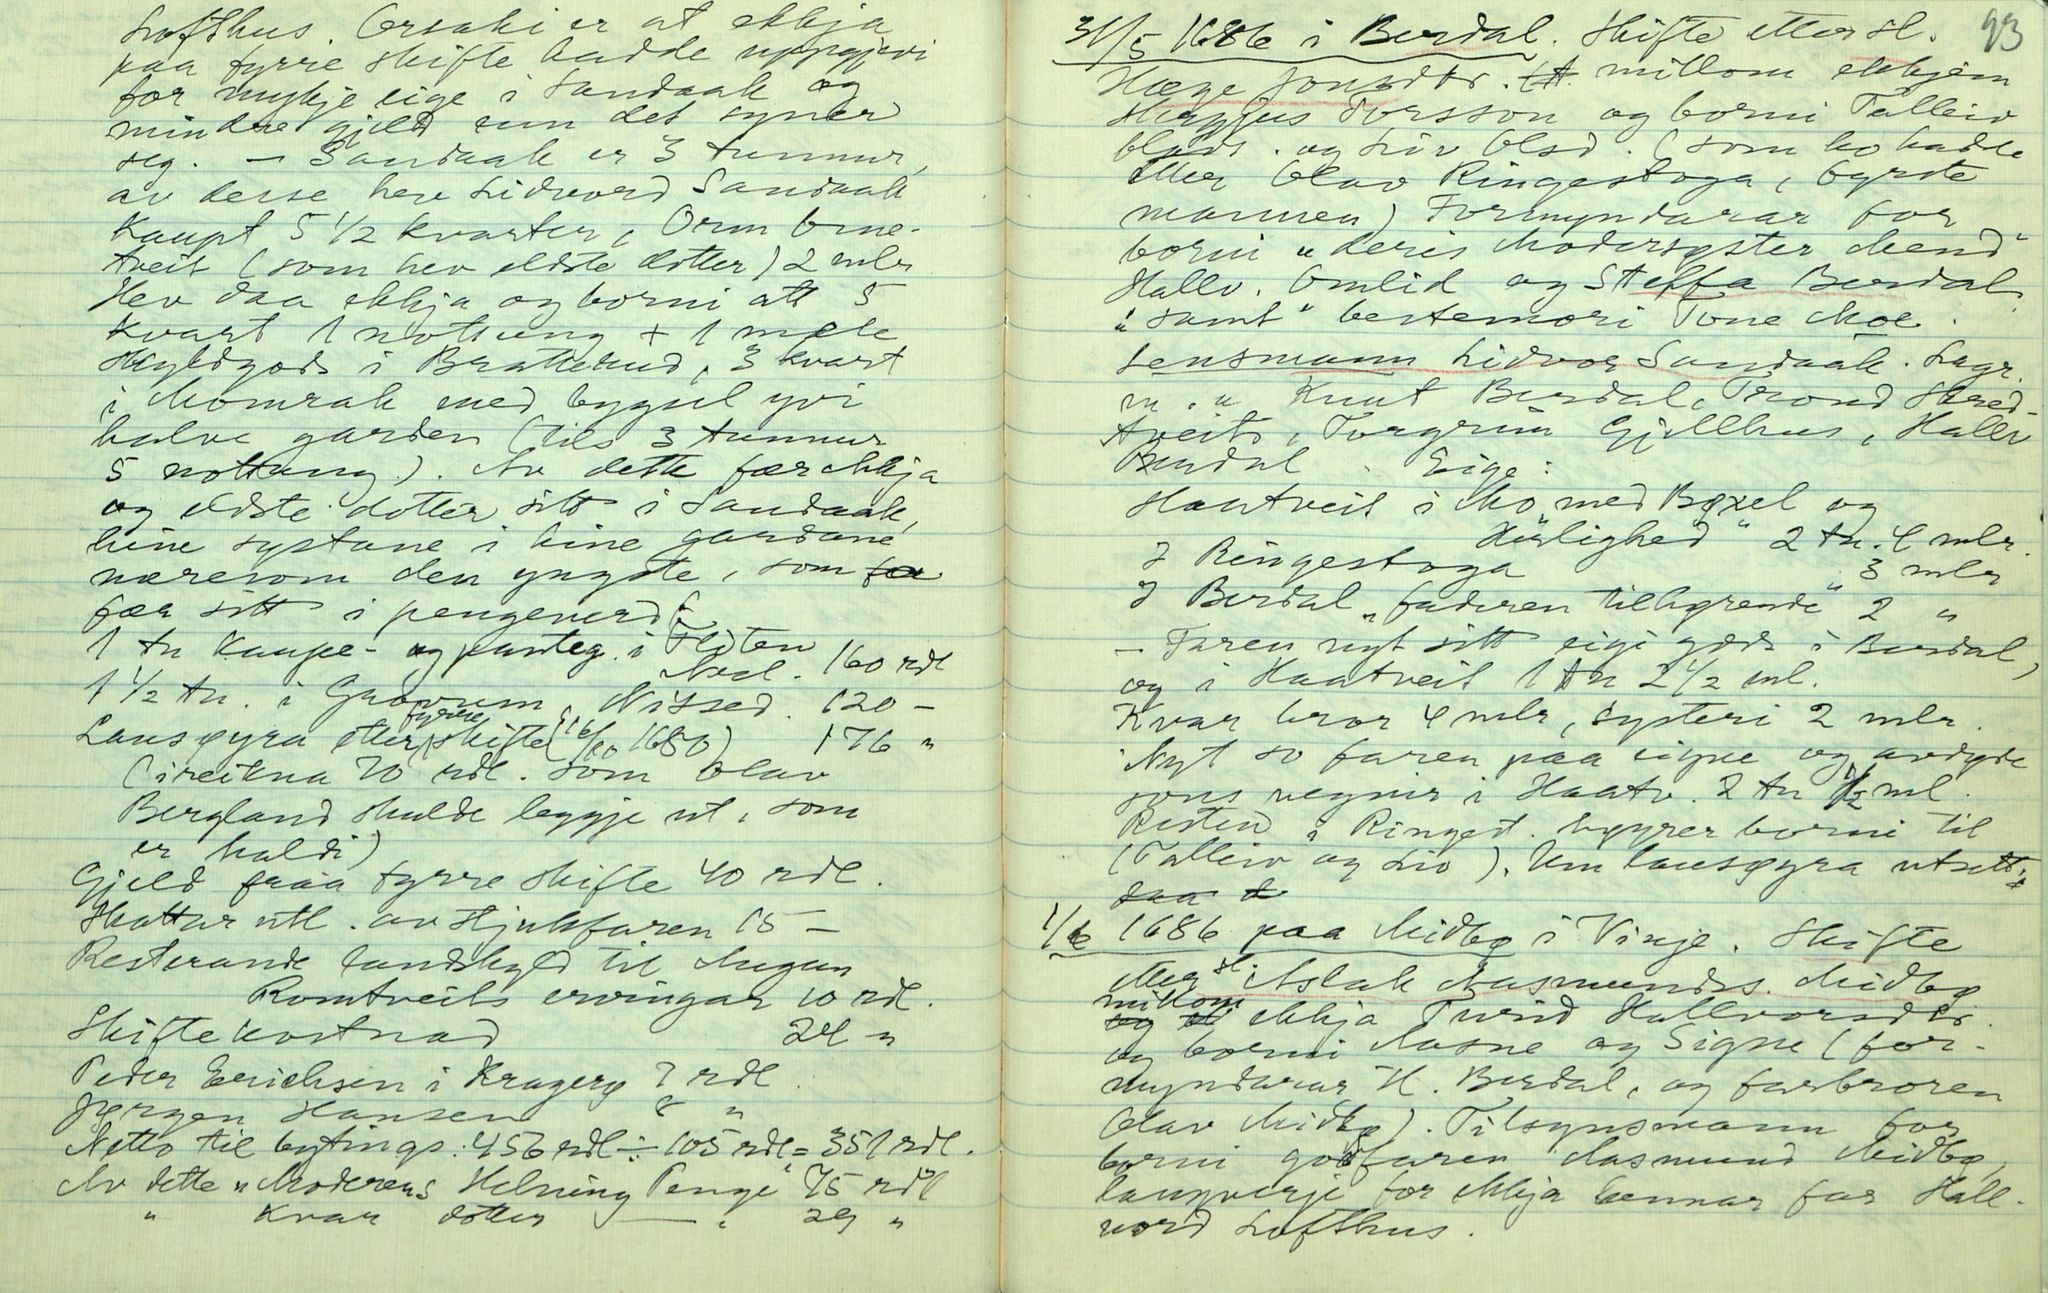 Lofthus. Orsaki er at ekkja
paa fyrre skifte hadde uppgjevi
for mykje eige i Sandaak og
mindre gjeld enn det syner
seg. — Sandaak er 3 tunnur,
av desse hev Lidvord Sandaak
kaupt 5 1/2 kvarter, Orm
tveit (som hev eldste dotter) 2 mlr
Hev daa ekkja og borni att 5
kvart 1 nottung + 1 mele
skyldgods i Brattelund, 3 kvart
i Momrak med bygsel yvi
halve garden (tils 3 tunnur
5 nottung). Av dette fær ekkja
og eldste dotter sitt i Sandaak,
hine systane i hine gardane
næresom den yngste, som fa
fær sitt i pengeverd:
1 tn kaupe- og panteg. i Floten
Nesl. 160 rdl
1 1/2 tn. i Gravum, Nissed. 120 —
Lausøyra etter fyrre skifte (16/10 1680) 176 "
(ireikna 70 rdl. som Olav
Bergland skulde leggje ut, som
er haldi)
Gjeld fraa fyrre skifte 40 rdl.
Skattar utl. av stjukfaren 15 —
Resterande landskyld til Augun
Romtveits ervingar 10 rdl.
Skiftekostnad 24 "
Peder Erichsen i Kragerø 7 rdl.
Jørgen Hansen 8 "
Netto til bytings: 456 rdl ÷ 105 rdl = 351 rdl.
Av dette "Moderens Helning Penge" 75 rdl
" kvar dotter — " 29 "
93
31/5 1686 i Berdal. Skifte etter sl.
Hæge Jonsdtr. millom ekkjem
Skeggjus Torsson og borni Talleiv
Olavs. og Liv Olsd. (som ho hadde
etter Olav Ringestoga, fyrste
mannen) Formyndarar for
borni "deris Modersyster Mend"
Hallv. Omlid og Steffa Berdal
"samt" bestemori Tone Moe.
Lensmann Lidvor Sandaak. Lagr.
m. " Knut Berdal, Trond Skred-
tveit, Torgrim Gjellhus, Hallv
Berdal. Eige:
Haatveit i Mo "med Bøxel og
Härlighed" 2 tn. 4 mlr.
I Ringestoga 3 mlr
I Berdal "faderen tilhørende" 2 "
— Faren nyt sitt eigi gods i Berdal,
og i Haatveit 1 tn 2 1/2 ml.
Kvar bror 4 mlr, systeri 2 mlr.
Nyt so faren paa eigne og avdøde
sons vegnir i Haatv. 2 tn 1/2 ml.
Resten i Ringest. høyrer borni til
(Talleiv og Liv). Um lausøyra utsett.
daa d
1/6 1686 paa Midbø i Vinje. Skifte
etter sl. Aslak Aasmundss. Midbø
millom ekkja Turid Hallvorsdtr.
og borni Aasne og Signe (for-
myndarar H. Berdal, og farbroren
Olav Midbø). Tilsynsmann for
borni godfaren Aasmund Midbø,
laugverje for ekkja hennar far Hall-
vord Lofthus.